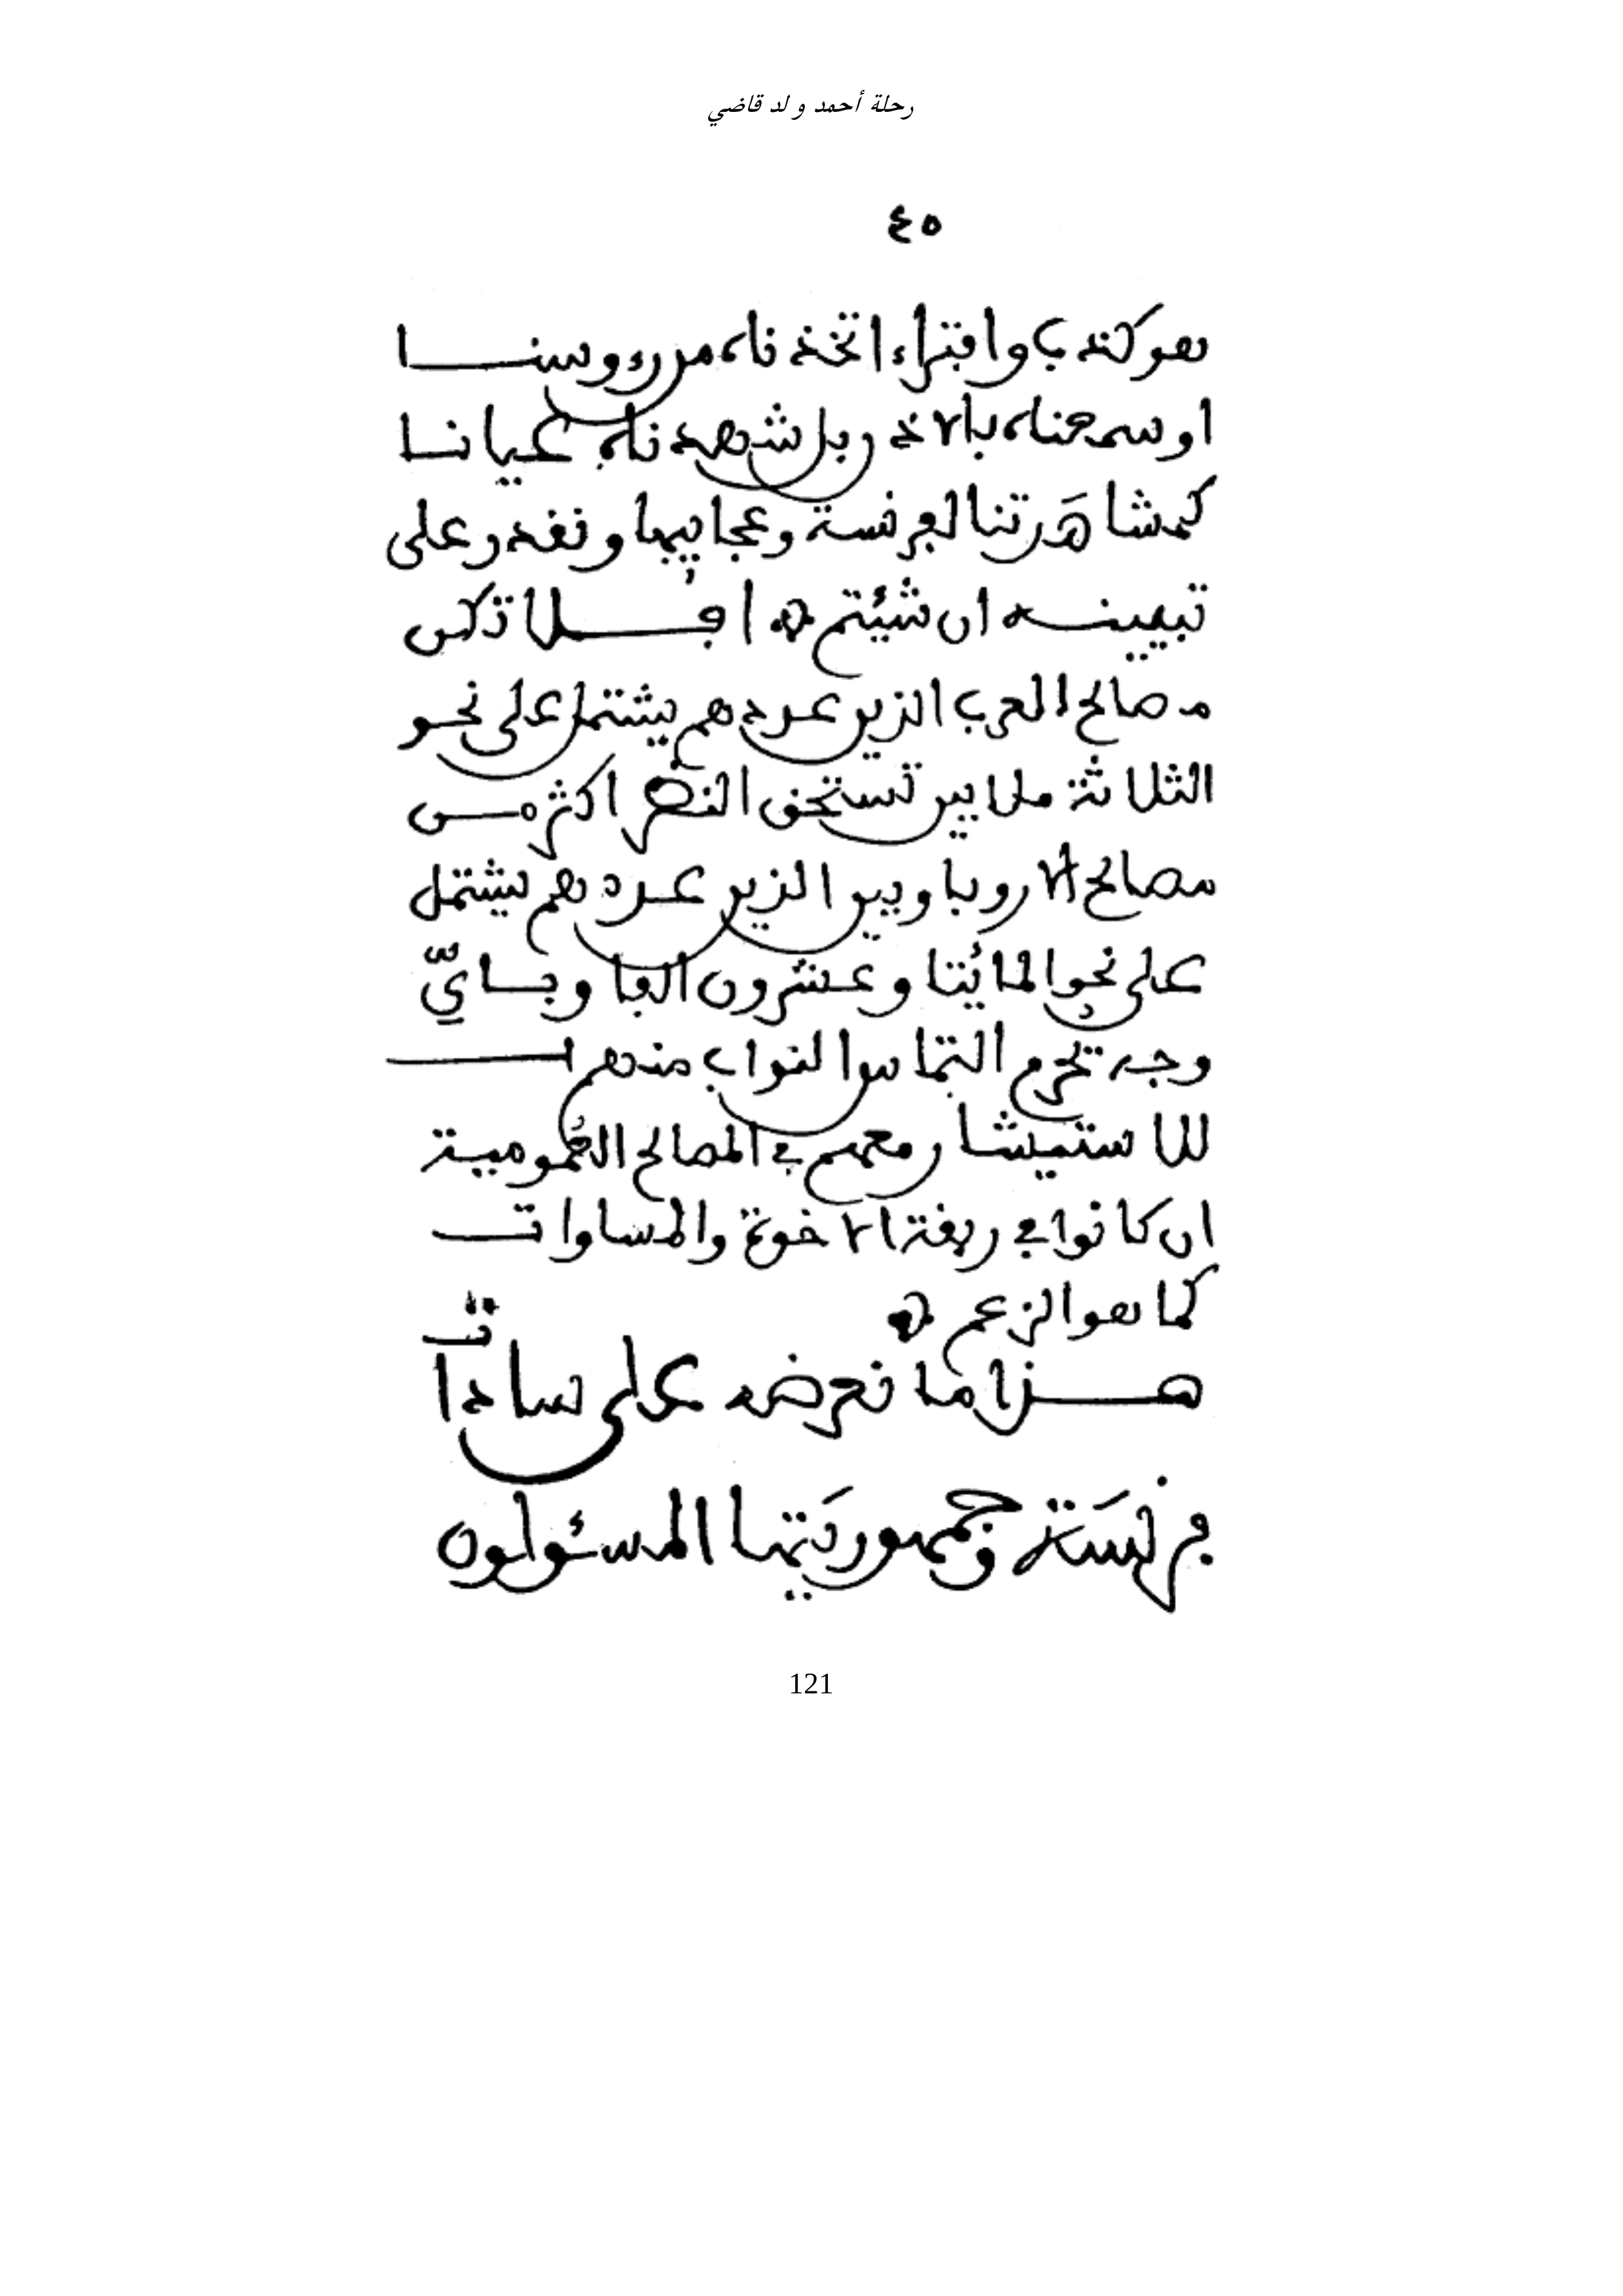 رحلة أحمد ولد قاضي
٤٥
هو كذب وافتراء اتخذناه من رءوسنا
او سمعناه بالاذن بل شهدناه عيانا
كمشاهَدتنا لفرنسة وعجايبها ونقدر على
تبيينه ان شئتم ۞ افلا تكن
مصالح العرب الذين عددهم يشتمل على نحو
الثلاثة ملايين تستحق النضر اكثر من
مصالح الاروباويين الذين عددهم يشتمل
على نحو المائتا وعشرون الفا وبايّ
وجه تحرم التماس النواب منهم
للاستيشار معهم في المصالح العُمومية
ان كانوا في ربقة الاخوة والمساوات
كما هو الزعم ۞
هذا ما نعرضه على سادات
فرنسَة وجمهوريَتها المسئولون
121